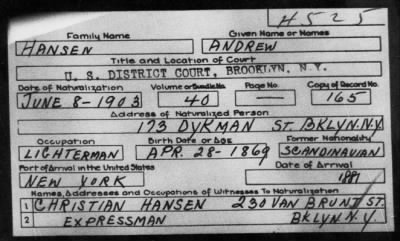 H525
Family Name Given Name or Names
HANSEN ANDREW
Title and Location of Court
U. S. DISTRICT COURT, BROOKLYN. N.Y.
Date of Naturalization Volume or Bundle No. Page No. Copy of Record No.
JUNE 8-1903 40 — 165
Address of Naturalized Person
173 DYKMAN ST. BKLYN.N.Y.
Occupation Birth Date or Age Former Nationality
LIGHTERMAN APR. 28-1869 SCANDINAVIAN
Port of Arrival in the United States Date of Arrival
NEW YORK 1881
Names, Addresses and Occupations of Witnesses To Naturalization
1 CHRISTIAN HANSEN 230 VAN BRUNT ST.
2 EXPRESSMAN BKLYN N.Y.